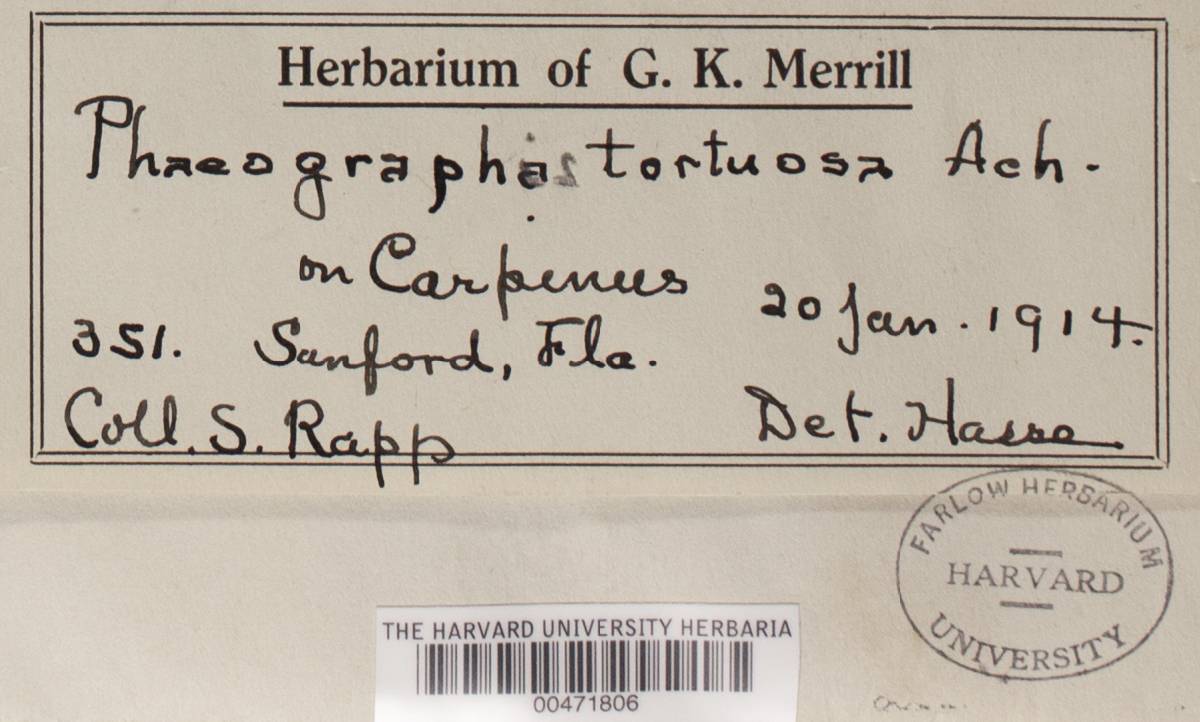 Herbarium of G. K. Merrill
Phaeographa tortuosa Ach.
on Carpinus
20 Jan. 1914.
351. Sanford, Fla.
Coll. S. Rapp
Det. Hasse
FARLOW HERBARIUM
HARVARD
UNIVERSITY
THE HARVARD UNIVERSITY HERBARIA
00471806